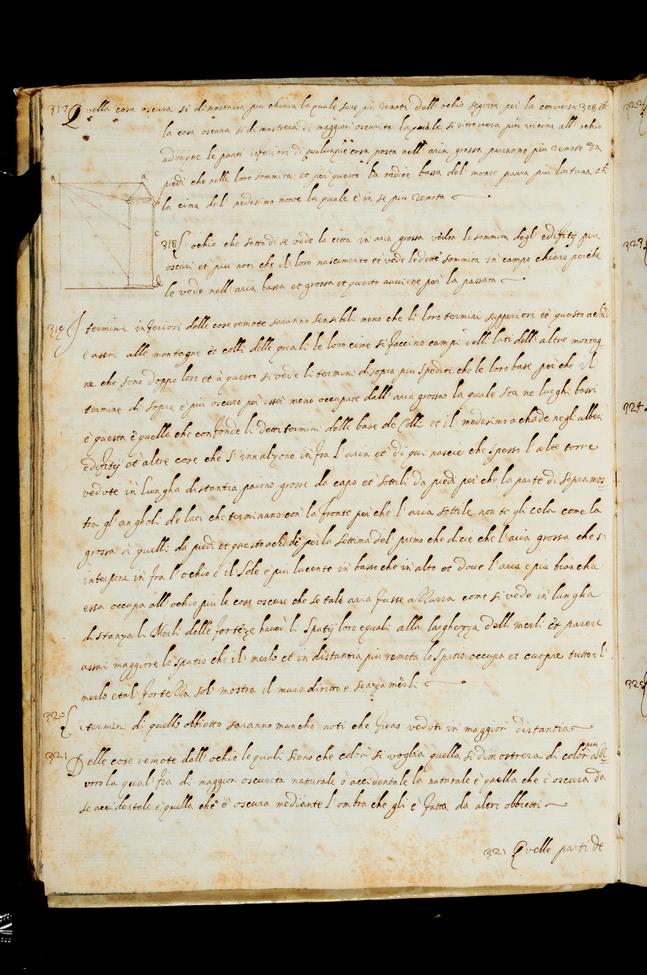 317 Quella cosa oscura si dimosterra piu chiara la quale sara piu remota dall'ochio seguita per la conversa 308 ch
la cosa oscura si dimosterra di maggior oscurita la quale si ritrovera piu vicina all'ochio
adonque le parti inferiori di qualunque cosa posta nell'aria grossa parranno piu remote da
piedi che nelle loro sommita et per questo la radice bassa del monte parra piu lontana ch
la cima del medesimo monte la quale è in se piu remota
n a
b
c
318 L'ochio che sotto di se vede la citta in aria grossa vedra le sommita degli edifitij piu
oscuri et piu noti che il loro nascimento et vede le dette sommita in campo chiaro perche
le vede nell'aria bassa et grossa et questo avviene per la passata
319 I termini inferiori delle cose remote saranno sensibili meno che li loro termini superiori et questo acade
è assai alle montagne et colli delle quali le loro cime si faccino campi delli lati dell'altre montag-
ne che sono doppo loro et à questo si vede li termini disopra piu spediti che le loro base perche il
termine di sopra è piu oscuro per esser meno occupato dall'aria grossa la quale sta ne luoghi bassi
e questa è quella che confonde li detti termini delle base de Colli et il medesimo achade negli alberi
edifitij et altre cose che s'innalzono in fra l'aria et di qui nasce che spesso l'alte torre
vedute in lungha distantia paiono grosse da capo et sottili da piedi per che la parte di sopra mos-
tra gl'angholi de lati che terminano con la fronte per che l'aria sottile non te gli cela come la
grossa di quelli da piedi et questo achade per la settima del primo che dicie che l'aria grossa che s'
interpone in fra l'ochio e il Sole è piu lucente in basso che in alto et dove l'aria è piu biancha
essa occupa all'ochio piu le cose oscure che se tale aria fusse azzurra come si vede in lungha
distanza li Merli delle forteze haver li spatij loro equali alla larghezza delli merli et parere
assai maggiore lo spatio che il merlo et in distantia piu remota lo spatio occupa et cuopre tutto il
merlo e tal fortezza sol' mostra il muro diritto e senza merli
320 i termini di quello obbietto saranno manche noti che fieno veduti in maggior distantia
321 Delle cose remote dall'ochio le quali sieno che color si voglia quella si dimosterra di color piu
la qual fia di maggior oscurita naturale o accidentale la naturale è quella che è oscura da
se accidentale è quella che è oscura mediante l'ombra che gli è fatta da altri obbietti
321 Quelle parti de